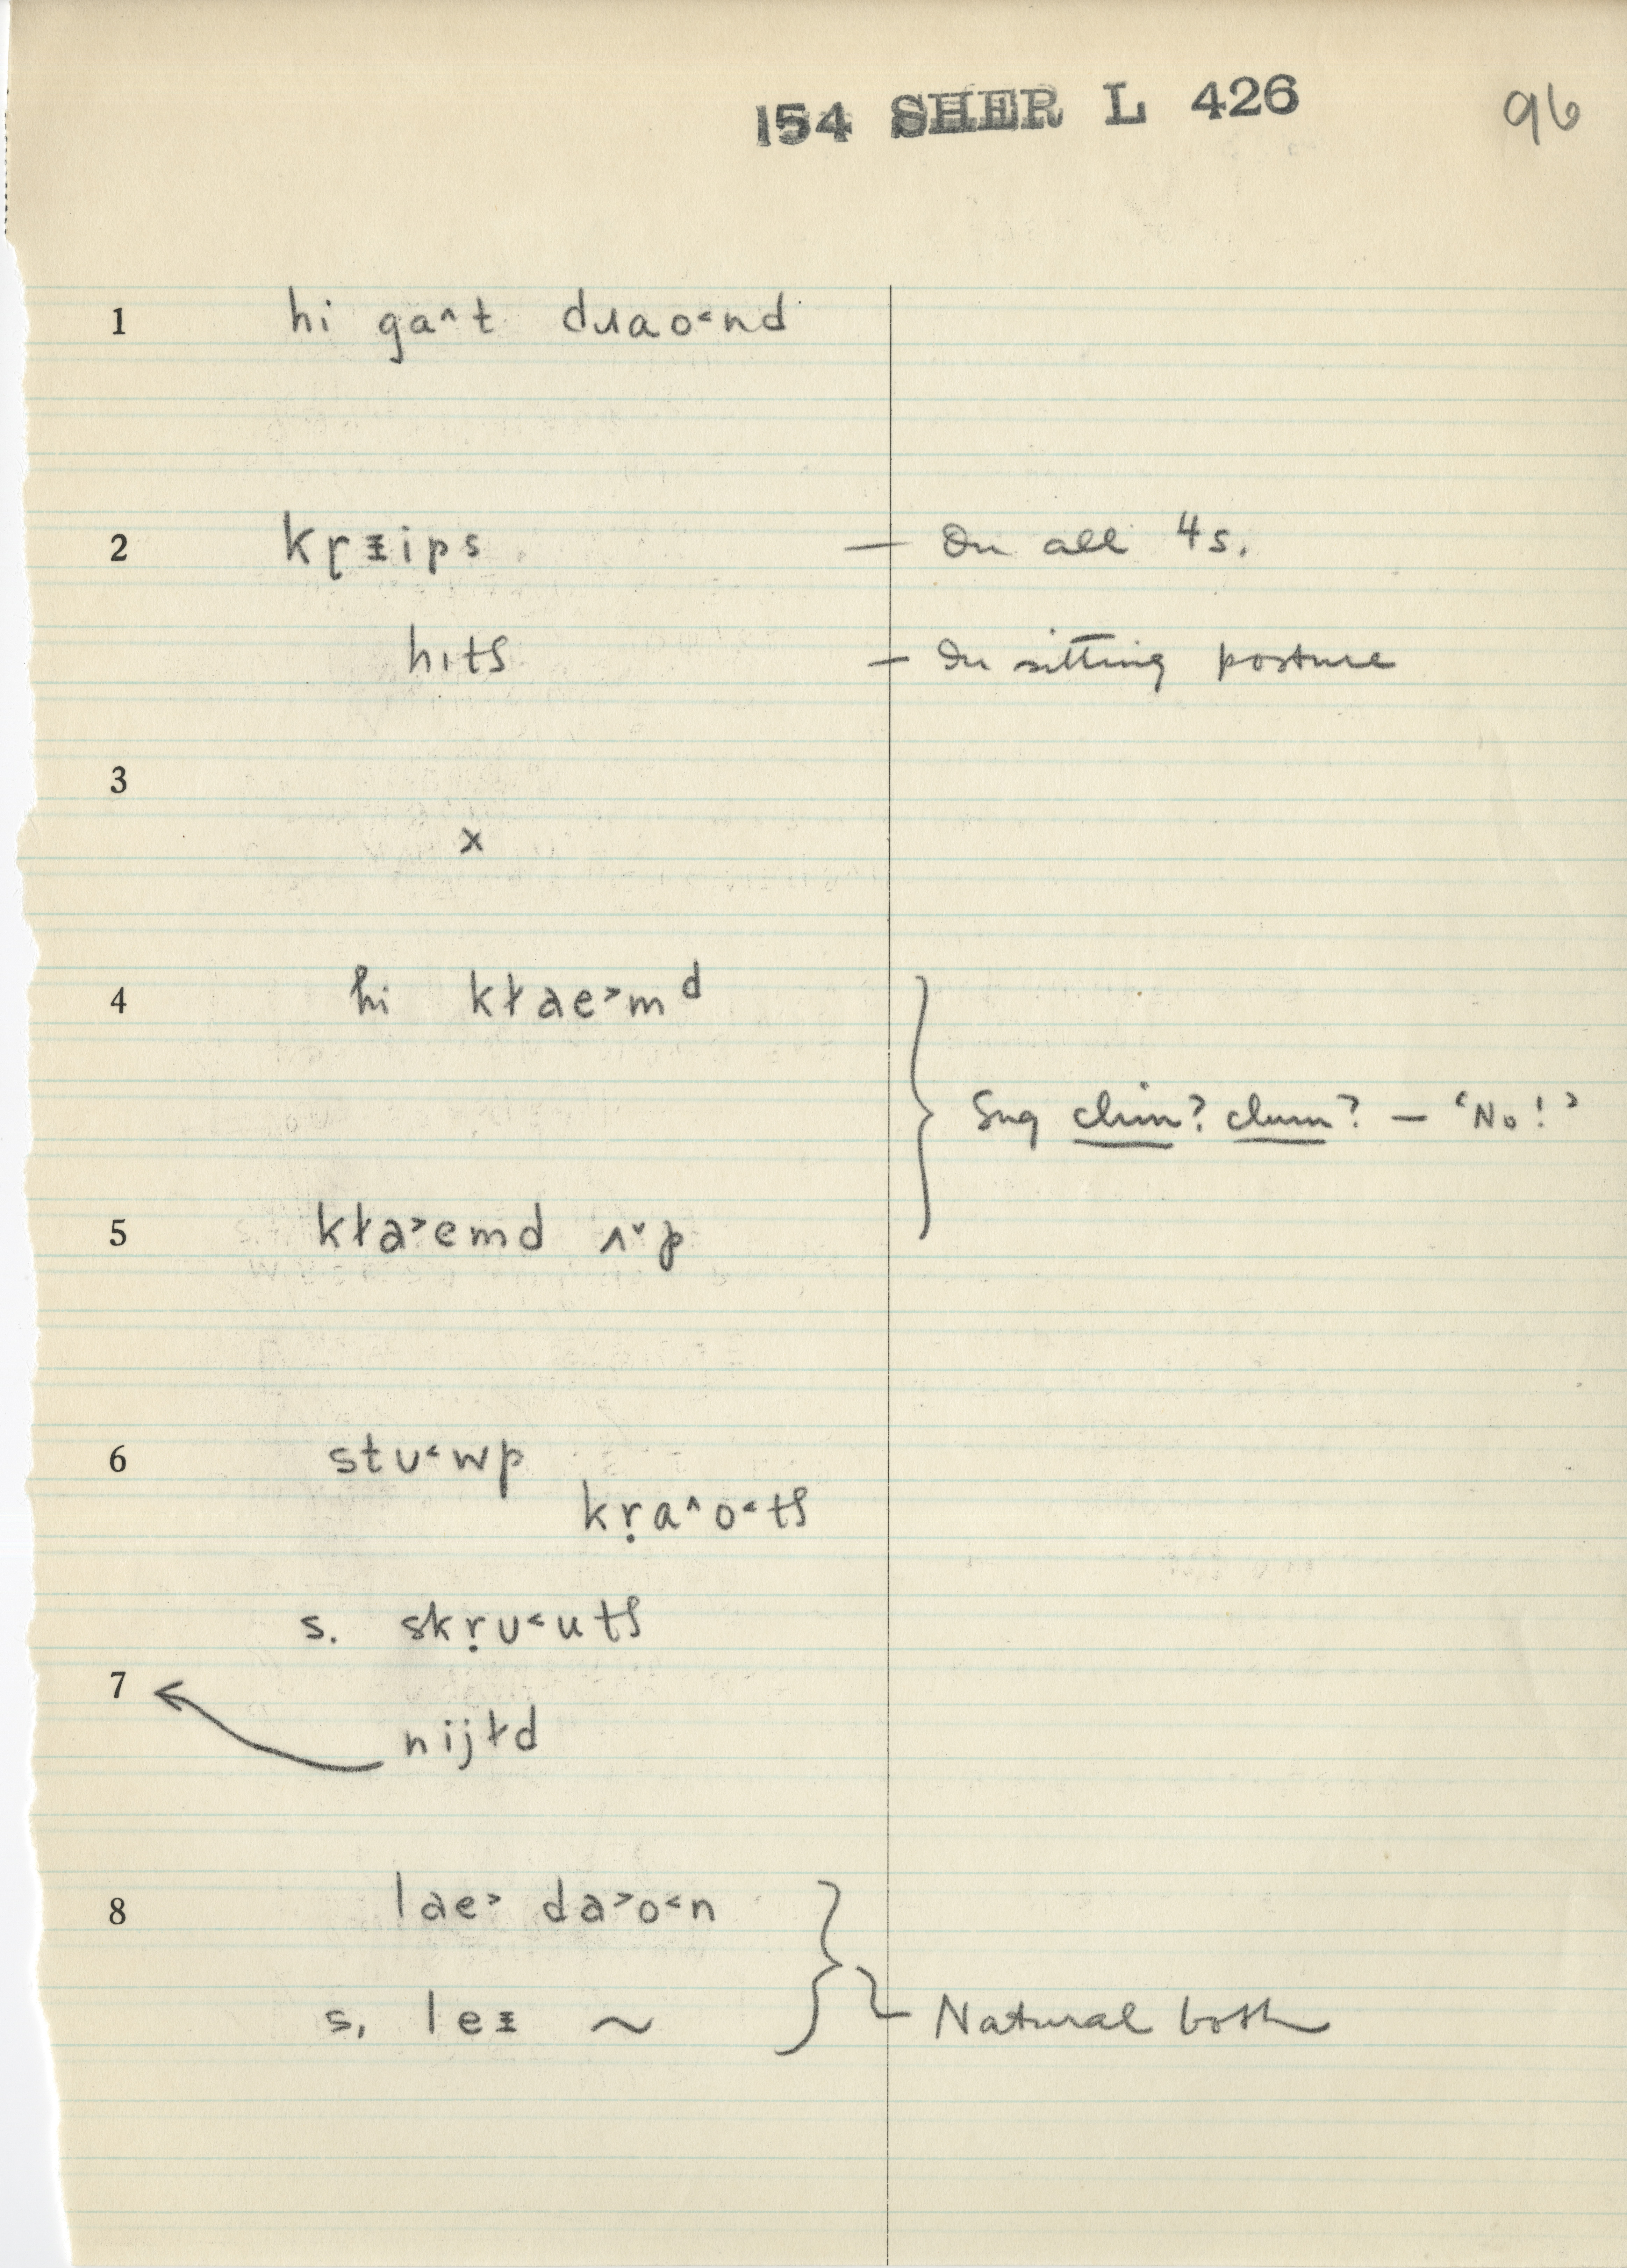 154 SHER L 426 96
1 hi ga˄t dɹao˂nd
2 kṛᵻips — On all 4s.
hıtʃ — In sitting posture
3
x
4 hi kɫae˃mᵈ
Sug clim? clum? — 'No!'
5 kɫa˃emd ʌ˅p
6 stʋ˂wp
kṛa˄o˂tʃ
s. skṛʋ˂utʃ
7
nijɫd
8 lae˃ da˃o˂n
s. leᵻ ~ — Natural both